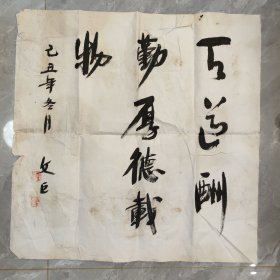 天道酬
勤厚德載
物
己丑年冬月
文巨